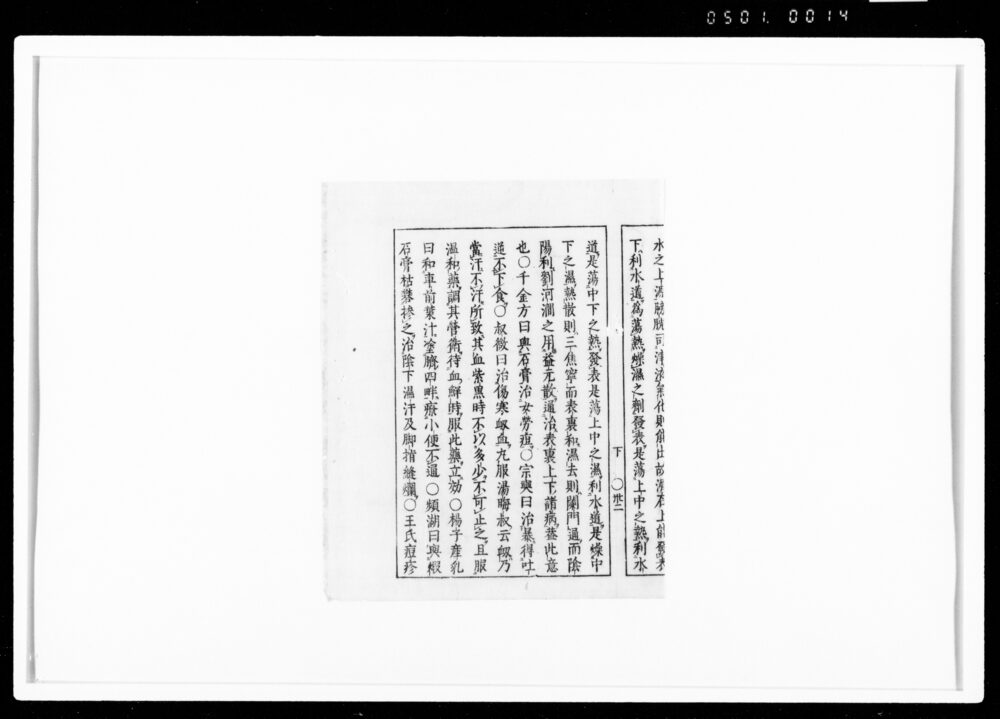 0501. 0014
水之上源膀胱司津液氣化則能出故滑石上能發表
下利水道爲蕩熱燥濕之劑發表是蕩上中之熱利水
下 〇卅二
道是蕩中下之熱發表是蕩上中之濕利水道是燥中
下之濕熱散則三焦寧而表裏和濕去則闌門通而陰
陽利劉河澗之用益元散通治表裏上下諸病葢此意
也〇千金方曰與石膏治女勞疸〇宗奭曰治暴得吐
逆不下食〇叔微曰治傷寒衂血丸服湯晦叔云衂乃
當汗不汗所致其血紫黑時不以多少不可止之且服
溫和藥調其營衛待血鮮時服此藥立効〇楊子產乳
曰和車前葉汁塗臍四畔療小便不通〇頻湖曰與煆
石膏枯礬摻之治陰下濕汗及脚指縫爛〇王氏痘疹